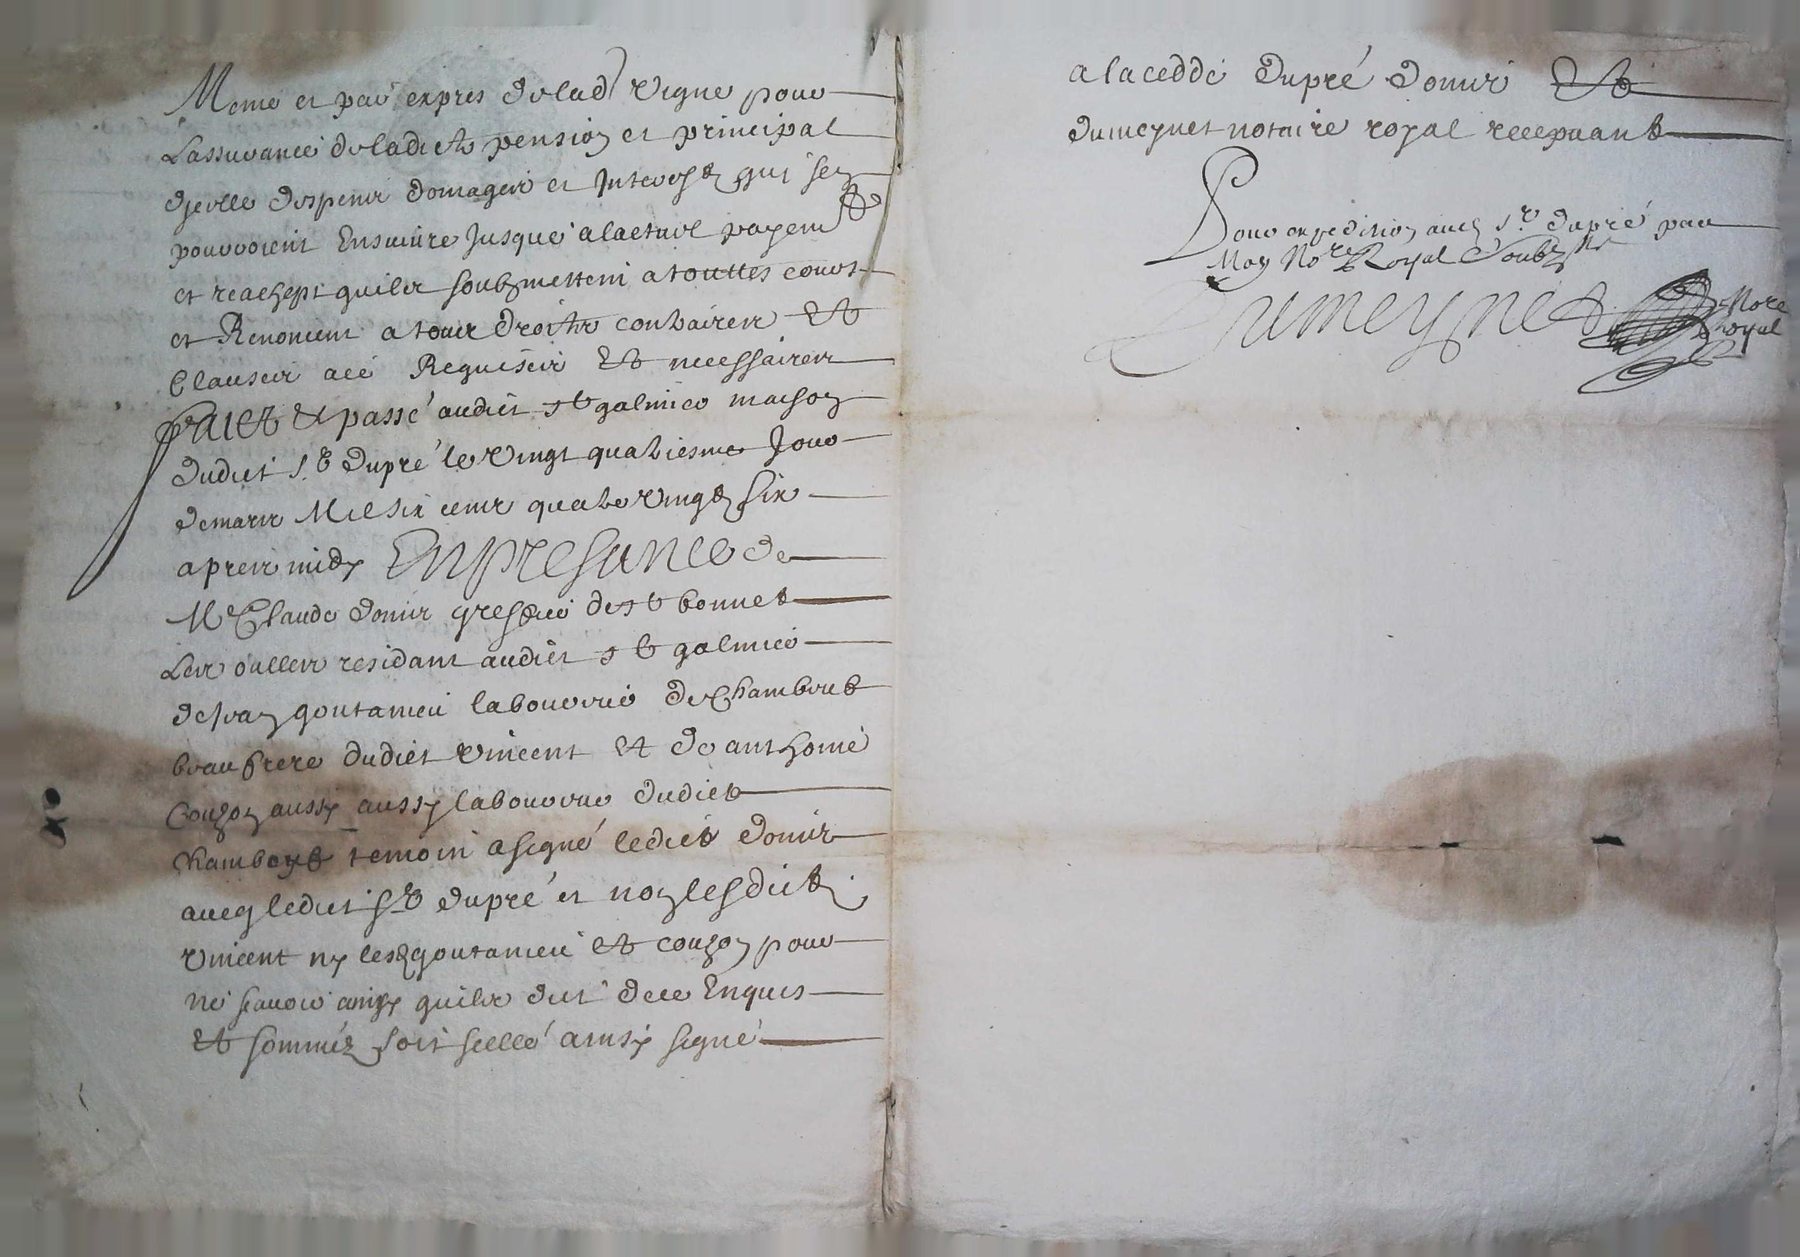 Meme et par expres de lad vigne pour
Lassurance de ladicte pension et principal
dicelle despens domages et Interestz qui sen
pourroient Ensuivre Jusque a lactuel payemt
et quiler soubzmettent a touttes cours
et Renoncent a tous droitz contraires et
Clauses ace Requises et necessaires
Faict et passé audict st galmier maison
dudict sr dupré le vingt quatriesme Jour
de mars Mil six cens quatre vingtz six
apres midy En presance de
Me Claude donis greffier de st bonnet
Les oulles residant audict st galmier
de Jean goutanieu laboureur de Chambeut
beau frere dudict vincent et de anthome
Couzon aussy aussy laboureur dudict
Chambeut temoin a signé ledict donis
avecq ledict sr dupré et non lesdictz
vincent ny lesd goutanieu et couzon pour
ne scavoir ainsy quilz ont dict Enquis
et sommés soit scellé ainsy signé
a la cedde dupré donis et
dumeynet notaire royal recepvant
Pour expedition audt sr dupré par
Moy Nore Royal Soubzne
Dumeynet Nore
royal